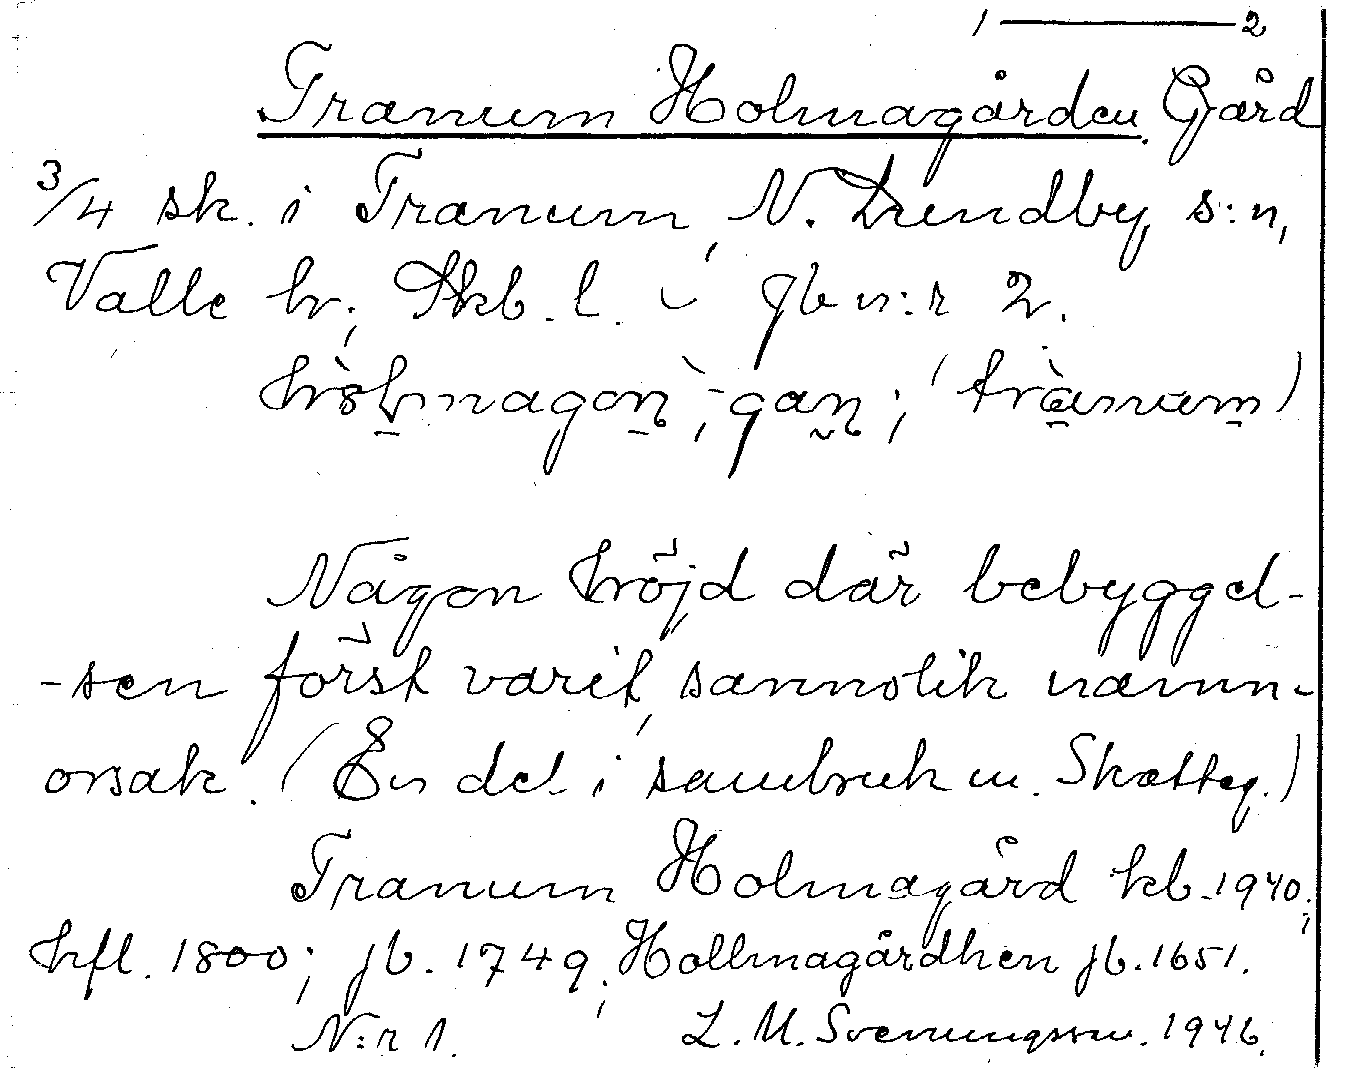 1 — 2
Tranum Holmagården. Gård
3/4 sk. i Tranum, N. Lundby s:n,
Valle hr; Skb. l. jb n:r 2.
hòlmagon, -gan; (trànum)
Någon höjd där bebyggel-
-sen först varit, sannolik namn-
orsak. (En del i sambruk m. Skatteg.)
Tranum Holmagård kb. 1940;
hfl. 1800; jb. 1749; Hollmagårdhen jb. 1651.
N:r 1. L. M. Svenungsson. 1946.